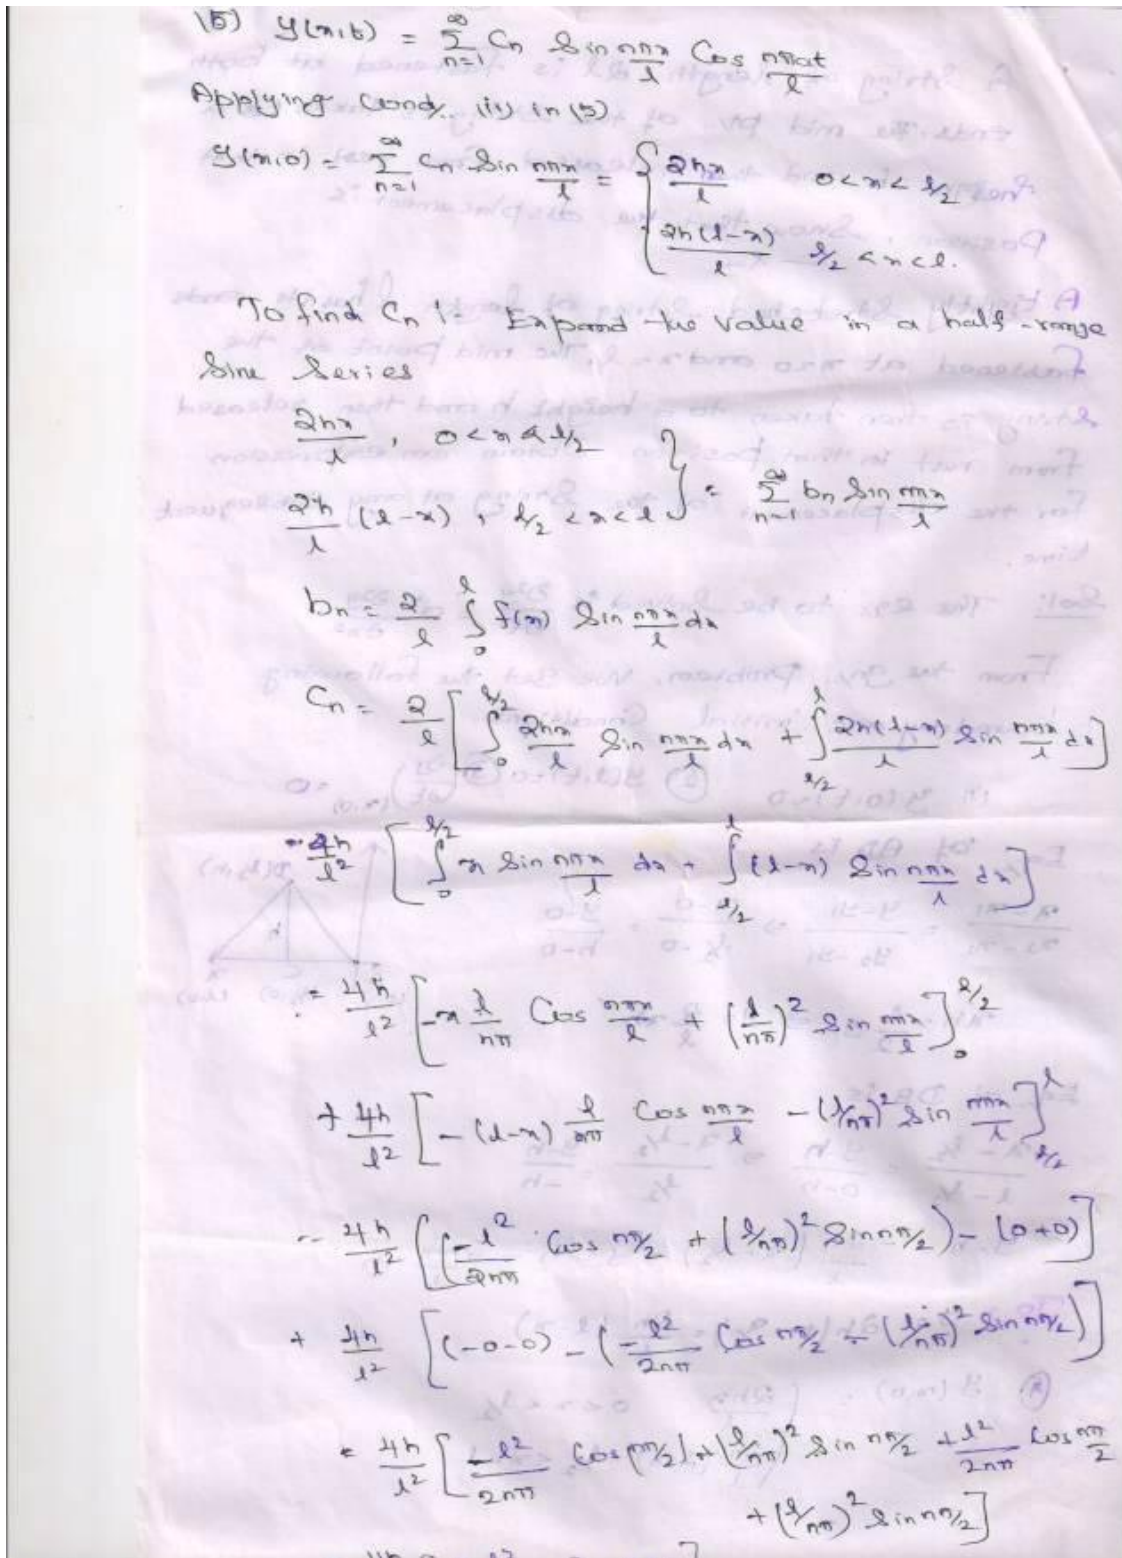 (5) y(x,t) = ∞Σn=1 Cn Sin nπx/l Cos nπat/l
Applying cond. (iv) in (5)
y(x,0) = ∞Σn=1 Cn Sin nπx/l = { 2hx/l 0<x<l/2
2h(l-x)/l l/2<x<l.
To find Cn :- Expand the value in a half-range
Sine Series
2hx/l , 0<x<l/2
2h/l (l-x) , l/2<x<l } = ∞Σn=1 bn Sin nπx/l
bn = 2/l ∫0^l f(x) Sin nπx/l dx
Cn = 2/l [ ∫0^l/2 2hx/l Sin nπx/l dx + ∫l/2^l 2h(l-x)/l Sin nπx/l dx ]
= 4h/l² [ ∫0^l/2 x Sin nπx/l dx + ∫l/2^l (l-x) Sin nπx/l dx ]
= 4h/l² [ -x l/nπ Cos nπx/l + (l/nπ)² Sin nπx/l ]0^l/2
+ 4h/l² [ -(l-x) l/nπ Cos nπx/l - (l/nπ)² Sin nπx/l ]l/2^l
= 4h/l² [ (-l²/2nπ Cos nπ/2 + (l/nπ)² Sin nπ/2) - (0+0) ]
+ 4h/l² [ (-0-0) - (-l²/2nπ Cos nπ/2 - (l/nπ)² Sin nπ/2) ]
= 4h/l² [ -l²/2nπ Cos(nπ/2) + (l/nπ)² Sin nπ/2 + l²/2nπ Cos nπ/2
+ (l/nπ)² Sin nπ/2 ]